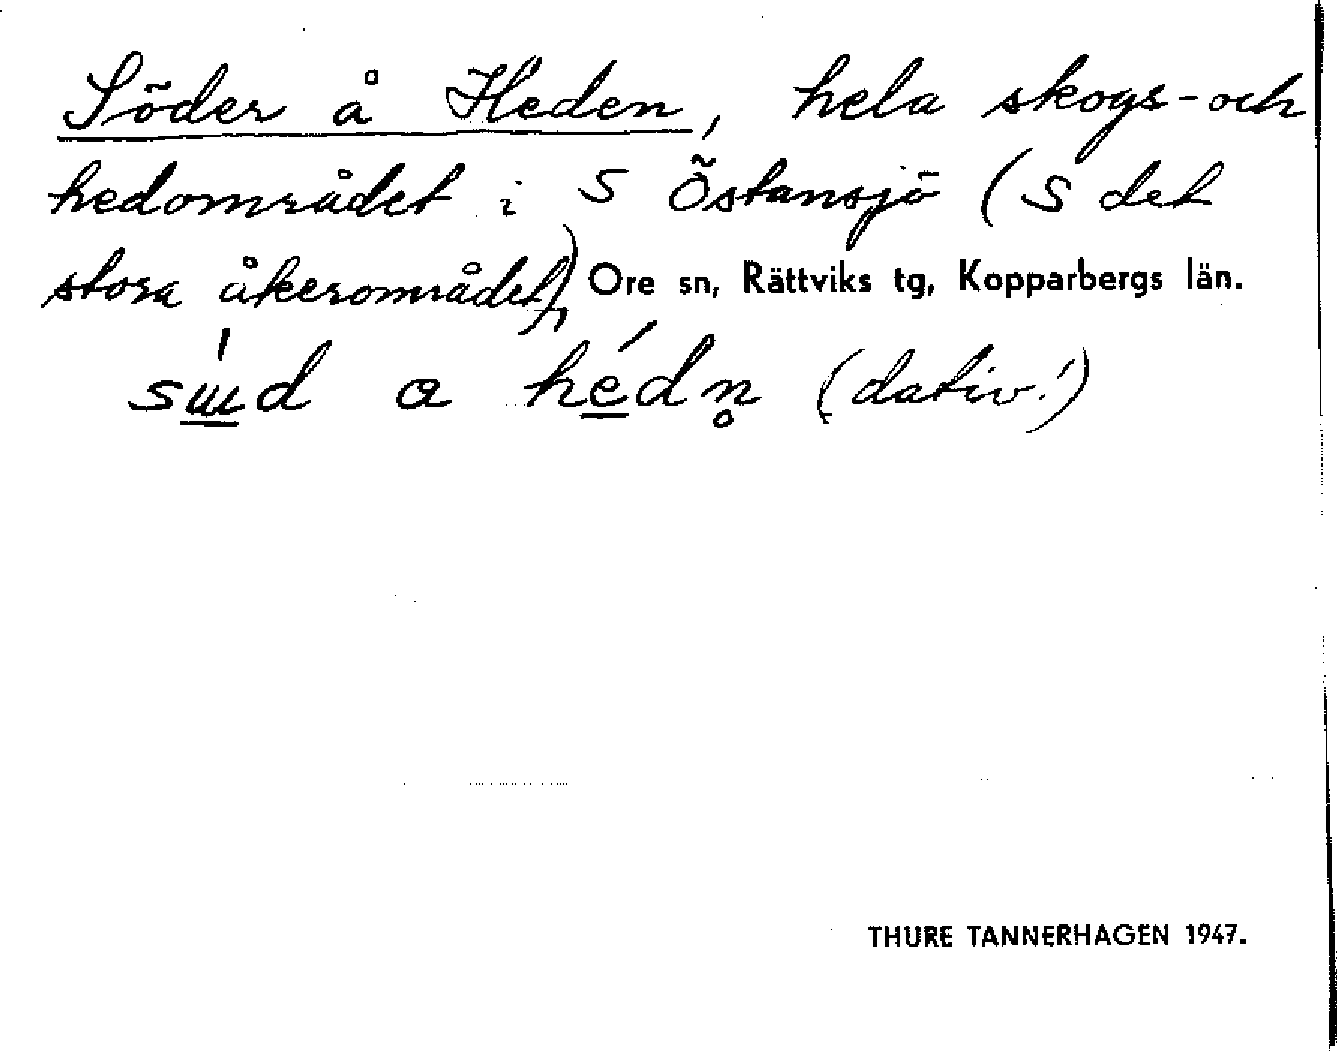 Söder å Heden, hela skogs- och
hedområdet i S Östansjö (S det
stora åkerområdet), Ore sn, Rättviks tg, Kopparbergs län.
(dativ!)
THURE TANNERHAGEN 1947.